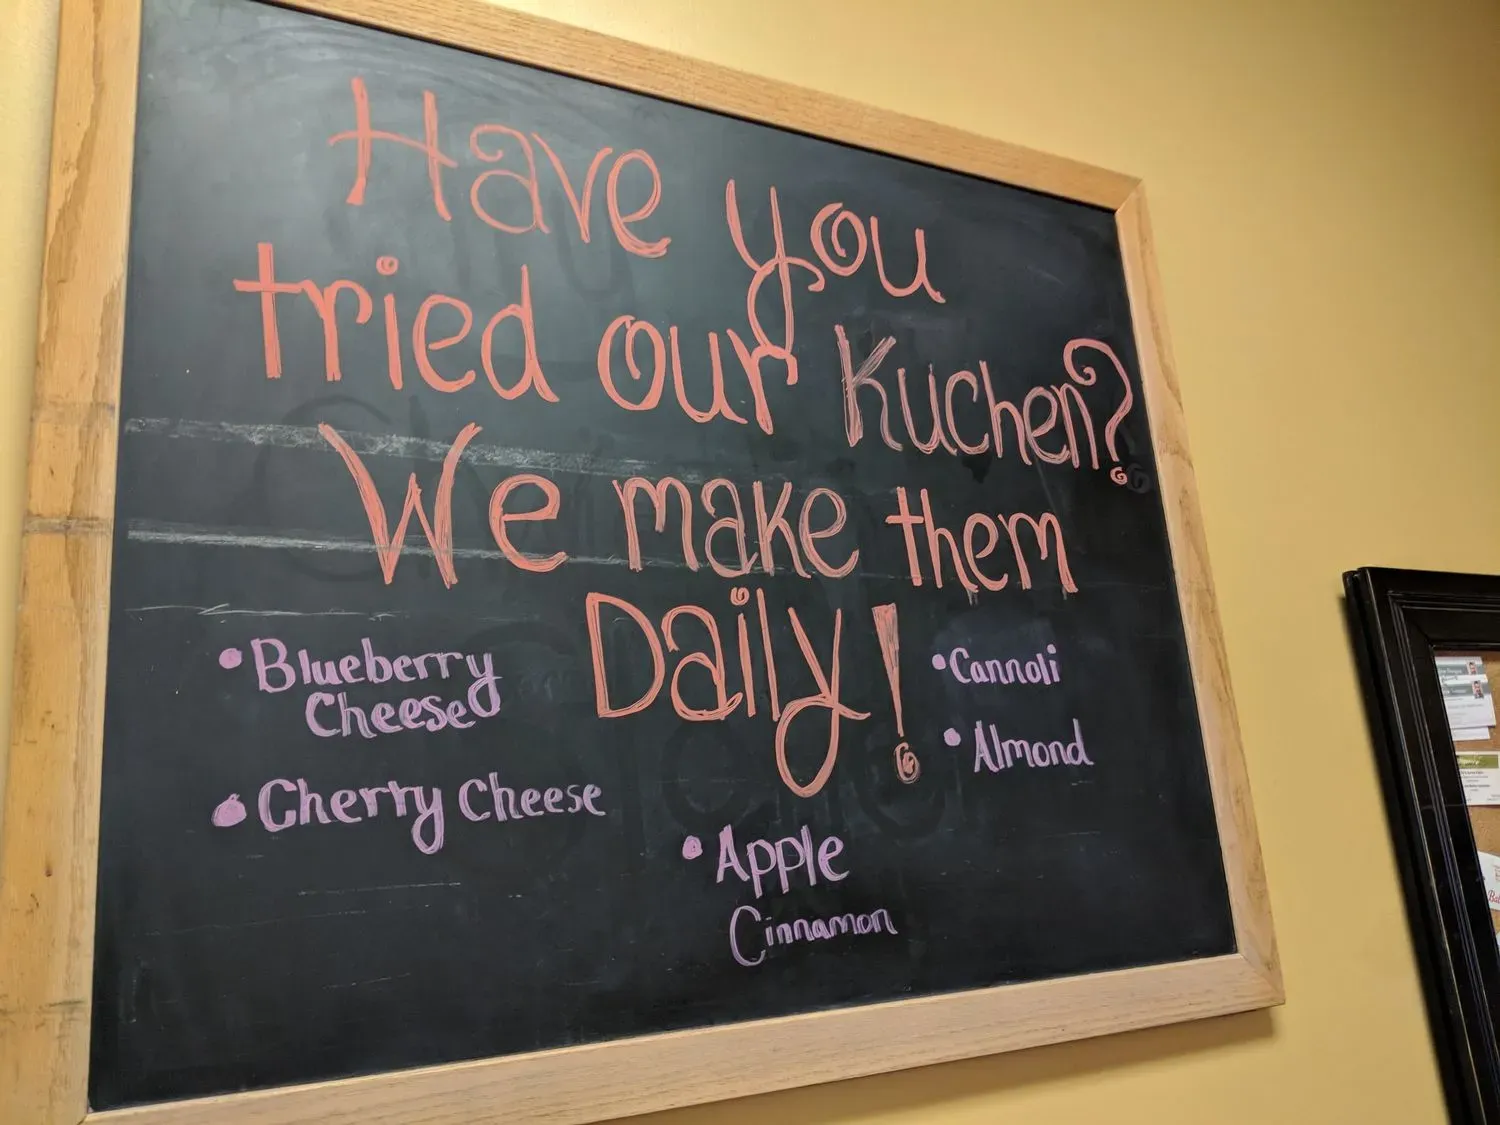 Have you
tried our Kuchen?
We make them
Daily!
• Blueberry
Cheese
• Cherry Cheese
• Cannoli
• Almond
• Apple
Cinnamon